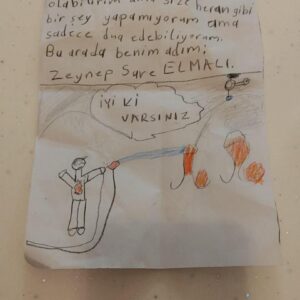 olabilirim ama size herangibi
bir şey yapamıyorum ama
sadece dua edebiliyorum.
Bu arada benim adım:
Zeynep Sare ELMALI.
İYİ Kİ
VARSINIZ